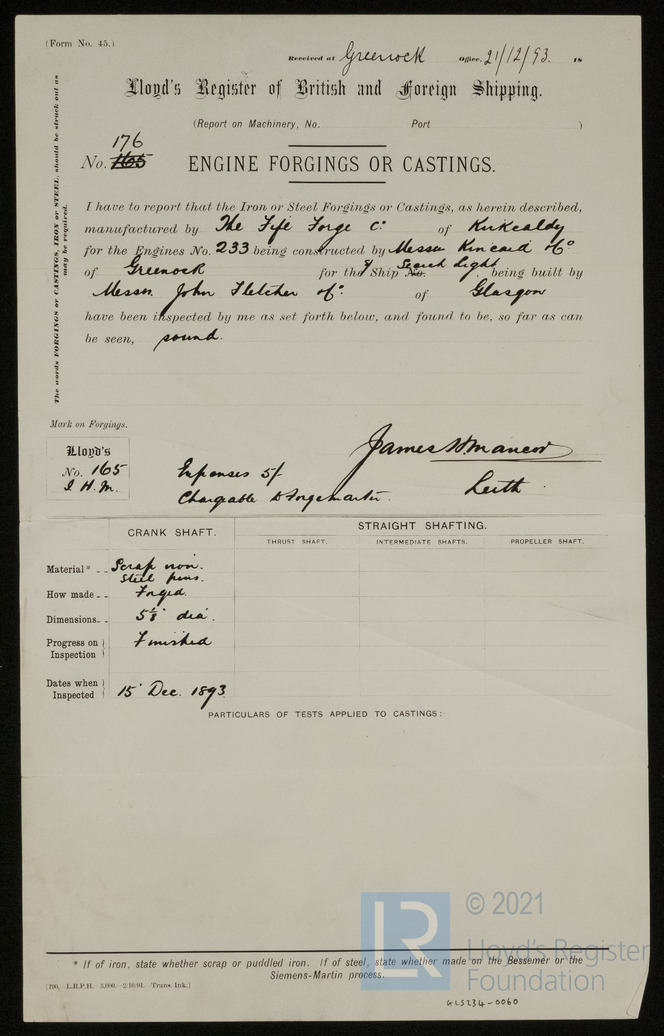 (Form No. 45.)
Received at Greenock Office, 21/12/93. 18
Lloyd's Register of British and Foreign Shipping.
(Report on Machinery, No. Port )
176
No. 165 ENGINE FORGINGS OR CASTINGS.
The words FORGINGS or CASTINGS, IRON or STEEL, should be struck out as
may be required.
I have to report that the Iron or Steel Forgings or Castings, as herein described,
manufactured by The Fife Forge Co of Kirkcaldy
for the Engines No. 233 being constructed by Messrs Kincaid & Co
of Greenock for the Ship No. Search Light being built by
Messrs John Fletcher & Co. of Glasgow
have been inspected by me as set forth below, and found to be, so far as can
be seen, sound.
Mark on Forgings.
Lloyd's
No. 165
J. H. M.
James H. Mancor
Leith
Expenses 5/-
Chargeable to Forgemaster.
CRANK SHAFT. STRAIGHT SHAFTING.
THRUST SHAFT. INTERMEDIATE SHAFTS. PROPELLER SHAFT.
Material* Scrap iron.
Steel pins.
How made Forged.
Dimensions dia.
Progress on Inspection Finished
Dates when Inspected 15 Dec. 1893
PARTICULARS OF TESTS APPLIED TO CASTINGS:
© 2021
LR Lloyd's Register
Foundation
* If of iron, state whether scrap or puddled iron. If of steel, state whether made on the Bessemer or the
Siemens-Martin process.
[790. L.R.P.H. 3,000.—2/10/91. Trans. Ink.]
GLS234-0060